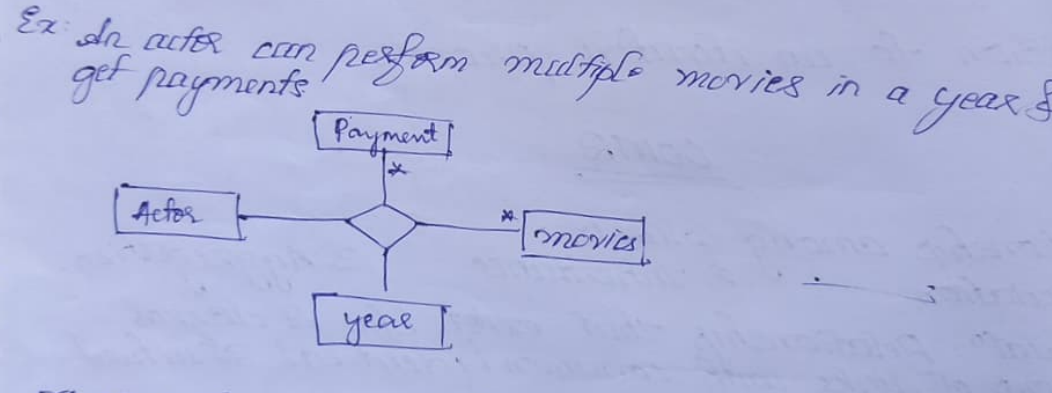 Ex: An actor can perform multiple movies in a year &
get payments
Payment
*
Actor
*
movies
year